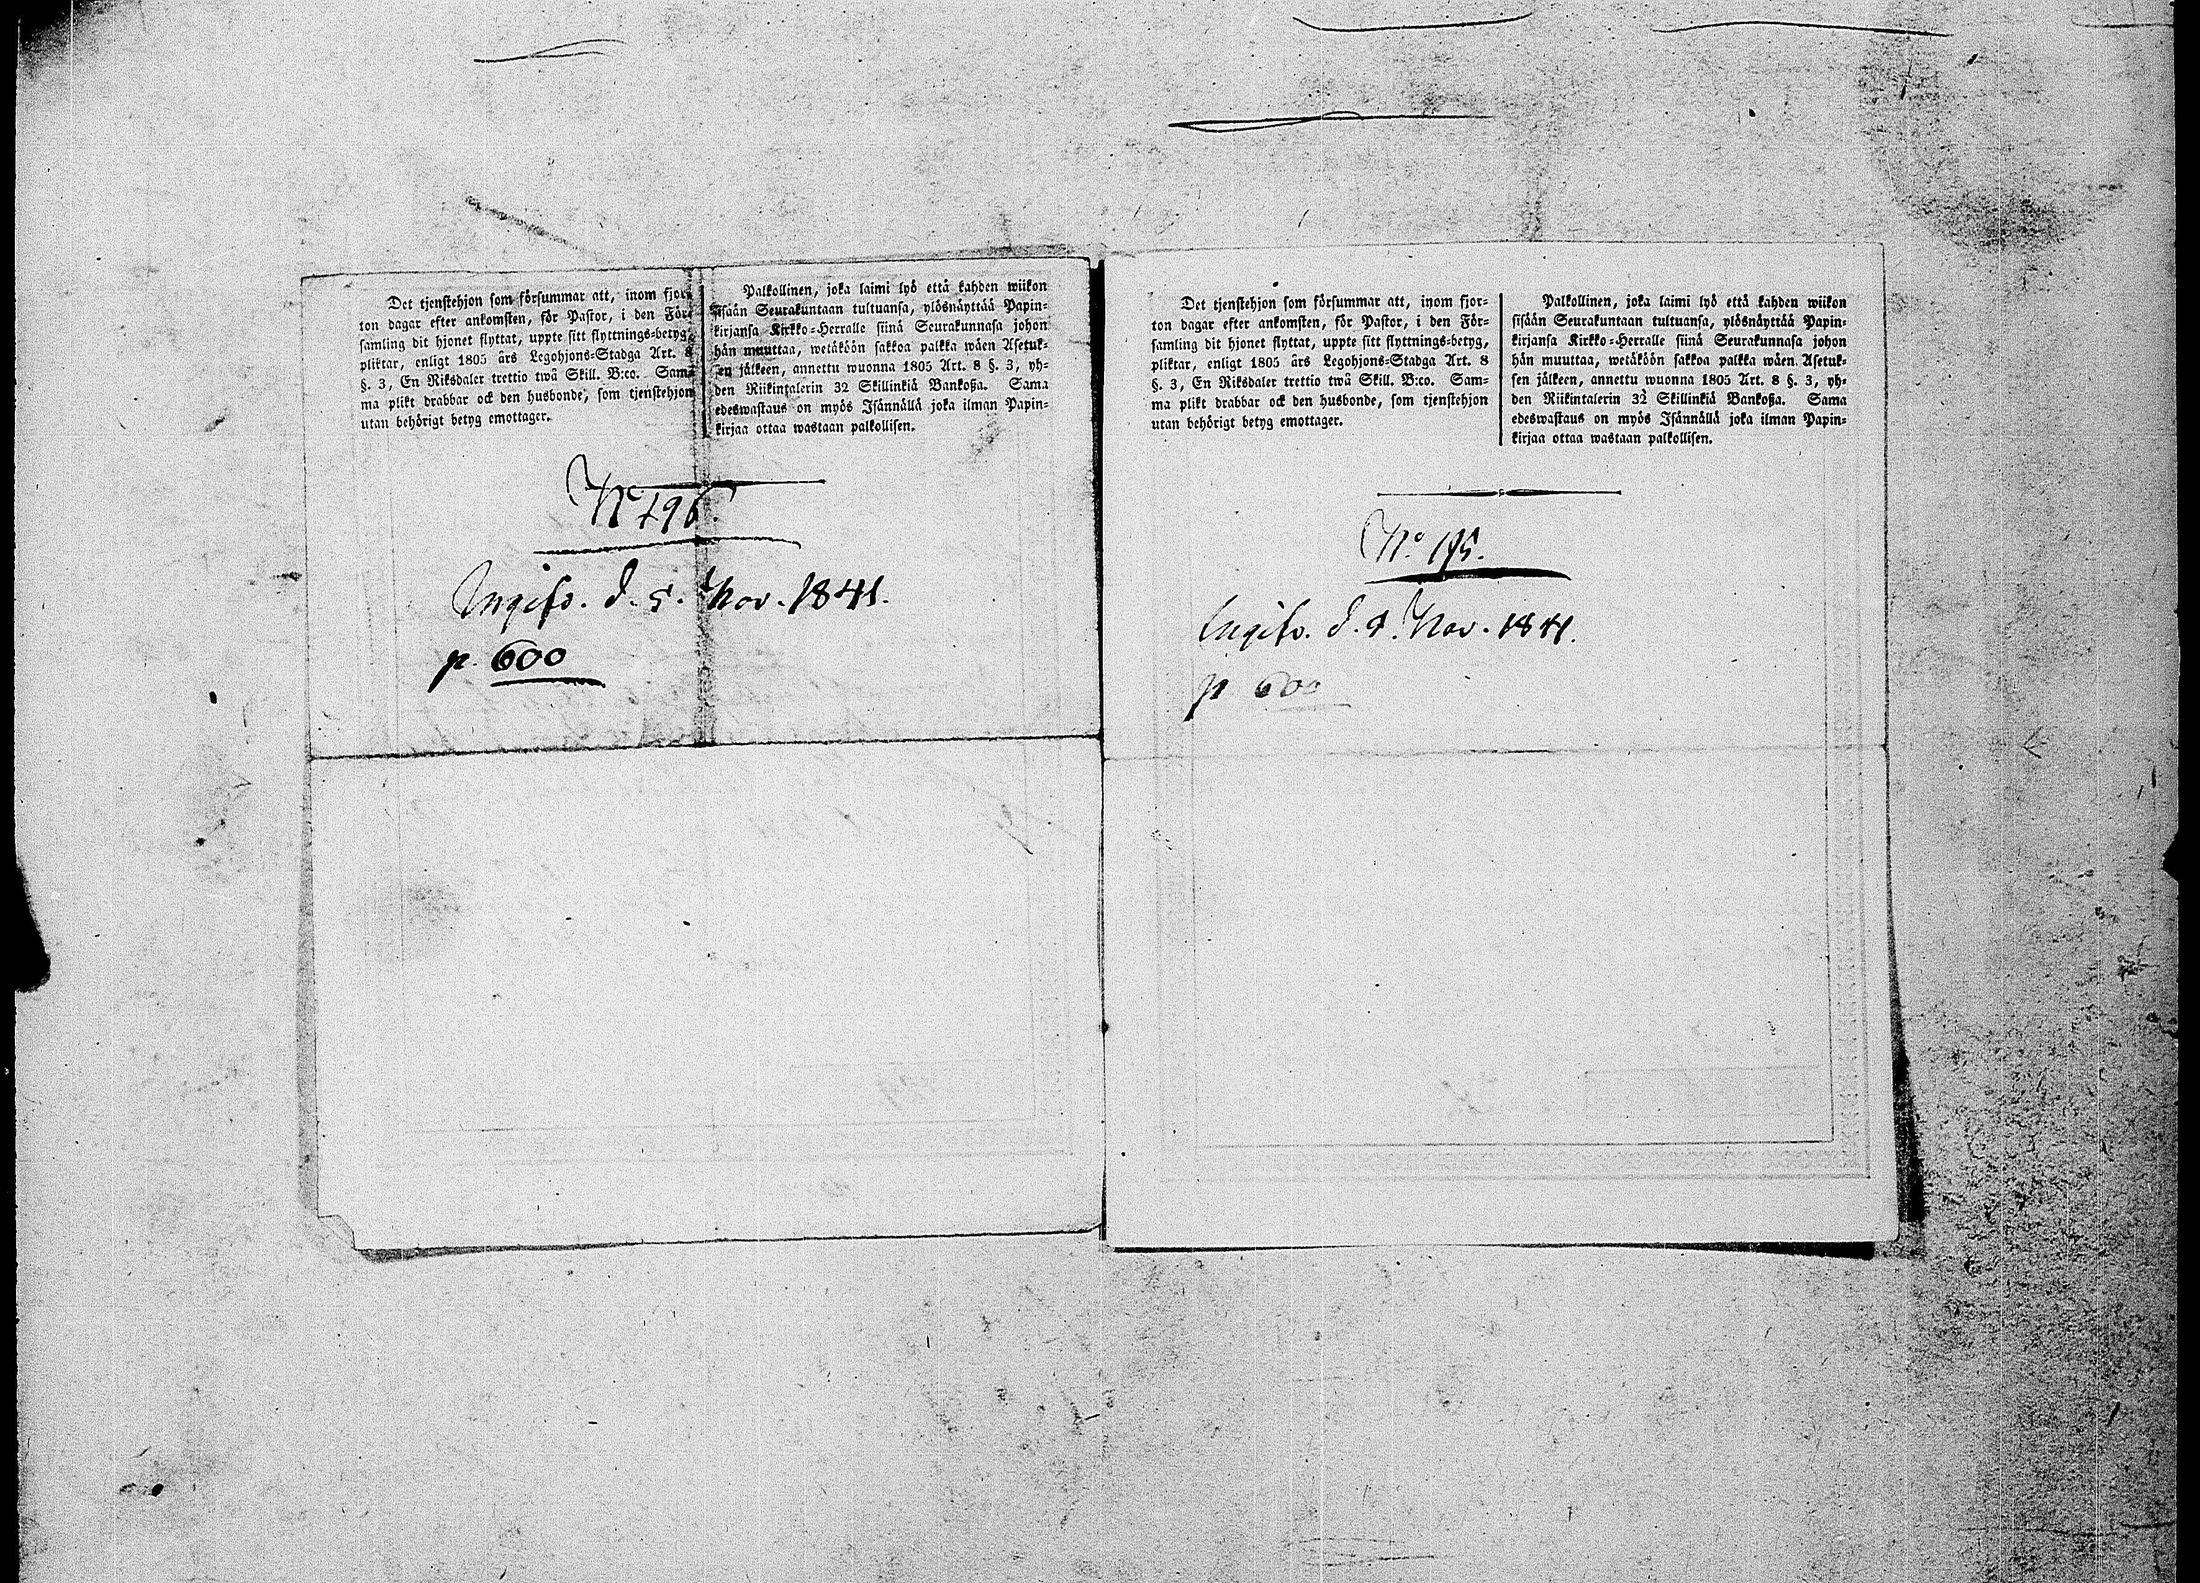 Det tjenstehjon som försummar att, inom fjor-
ton dagar efter ankomsten, för Pastor, i den För-
samling dit hjonet flyttat, uppte sitt flyttnings-betyg,
pliktar, enligt 1805 års Legohjons-Stadga Art. 8
§. 3, En Riksdaler trettio twå Skill. B:co. Sam-
ma plikt drabbar ock den husbonde, som tjenstehjon
utan behörigt betyg emottager.
Palkollinen, joka laimi lyö että kahden wiikon
sisään Seurakuntaan tultuansa, ylösnäyttää Papin-
kirjansa Kirkko-Herralle siinä Seurakunnasa johon
hän muuttaa, wetäköön sakkoa palkka wäen Asetuk-
sen jälkeen, annettu wuonna 1805 Art. 8 §. 3, yh-
den Riikintalerin 32 Skillinkiä Bankoßa. Sama
edeswastaus on myös Isännällä joka ilman Papin-
kirjaa ottaa wastaan palkollisen.
No 196.
Ingifv. d. 5. Nov. 1841.
p. 600
Det tjenstehjon som försummar att, inom fjor-
ton dagar efter ankomsten, för Pastor, i den För-
samling dit hjonet flyttat, uppte sitt flyttnings-betyg,
pliktar, enligt 1805 års Legohjons-Stadga Art. 8
§. 3, En Riksdaler trettio twå Skill. B:co. Sam-
ma plikt drabbar ock den husbonde, som tjenstehjon
utan behörigt betyg emottager.
Palkollinen, joka laimi lyö että kahden wiikon
sisään Seurakuntaan tultuansa, ylösnäyttää Papin-
kirjansa Kirkko-Herralle siinä Seurakunnasa johon
hän muuttaa, wetäköön sakkoa palkka wäen Asetuk-
sen jälkeen, annettu wuonna 1805 Art. 8 §. 3, yh-
den Riikintalerin 32 Skillinkiä Bankoßa. Sama
edeswastaus on myös Isännällä joka ilman Papin-
kirjaa ottaa wastaan palkollisen.
No. 195.
Ingifv. d. Nov. 1841.
p 600